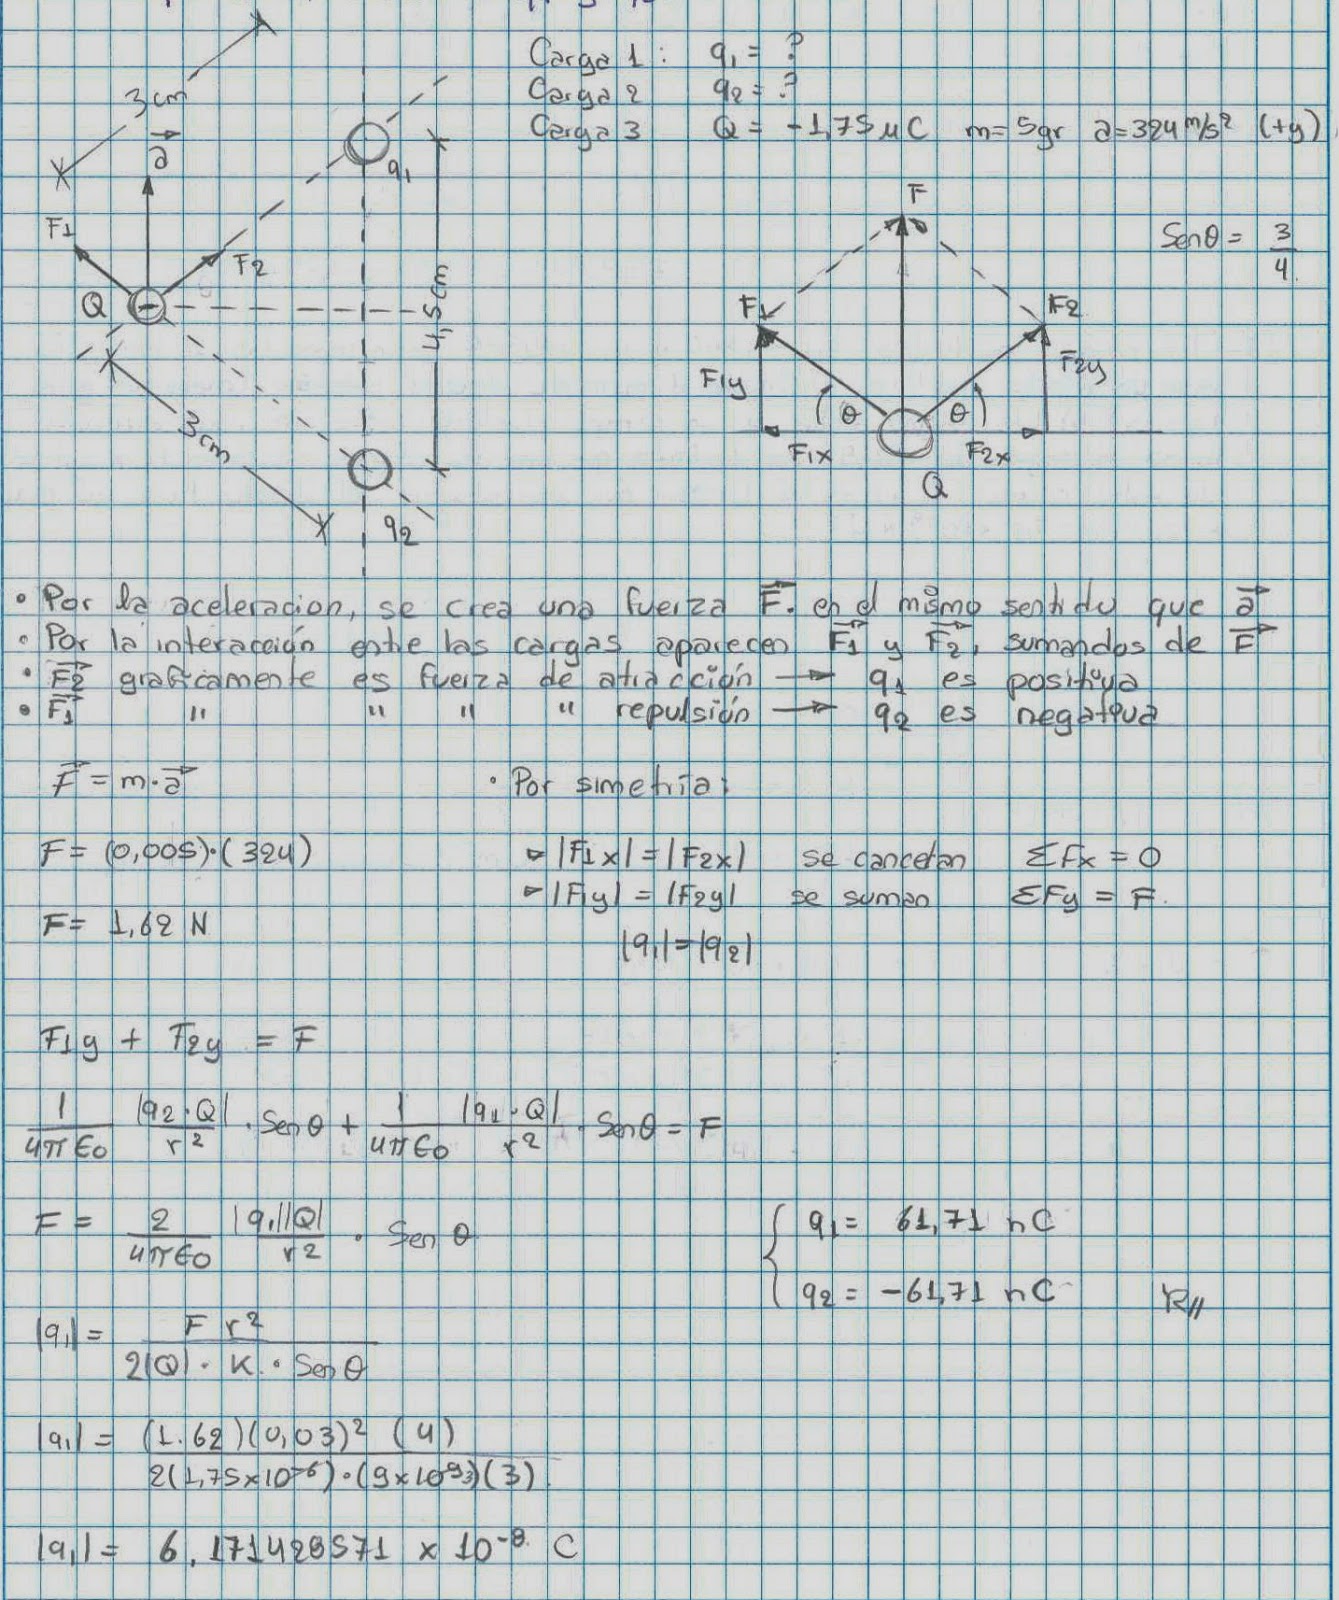 Carga 1: q1 = ?
Carga 2 q2 = ?
Carga 3 Q = -1,75 μC m = 5gr a = 324 m/s² (+y)
3cm
a
q1
F1
F2
Q
4,5cm
3cm
q2
F
Senθ = 3/4
F1
F2
F1y
F2y
θ
θ
F1x
F2x
Q
• Por la aceleracion, se crea una fuerza F. en el mismo sentido que a
• Por la interacción entre las cargas aparecen F1 y F2, sumandos de F
• F2 graficamente es fuerza de atracción → q1 es positiva
• F1 " " " " repulsión → q2 es negativa
F = m·a
• Por simetría:
F = (0,005)·(324)
▹ |F1x| = |F2x| se cancelan ΣFx = 0
▹ |F1y| = |F2y| se suman ΣFy = F.
F = 1,62 N
|q1| = |q2|
F1y + F2y = F
1/4πϵ0 |q2·Q|/r² · Senθ + 1/4πϵ0 |q1·Q|/r² · Senθ = F
F = 2/4πϵ0 |q1||Q|/r² · Senθ
q1 = 61,71 nC
q2 = -61,71 nC R//
|q1| = F r² / 2|Q|·K·Senθ
|q1| = (1.62)(0,03)² (4) / 2(1,75x10⁻⁶)·(9x10⁹)(3)
|q1| = 6,171428571 x 10⁻⁸ C